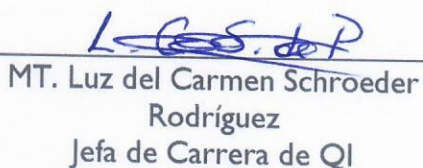 MT. Luz del Carmen Schroeder
Rodríguez
Jefa de Carrera de QI